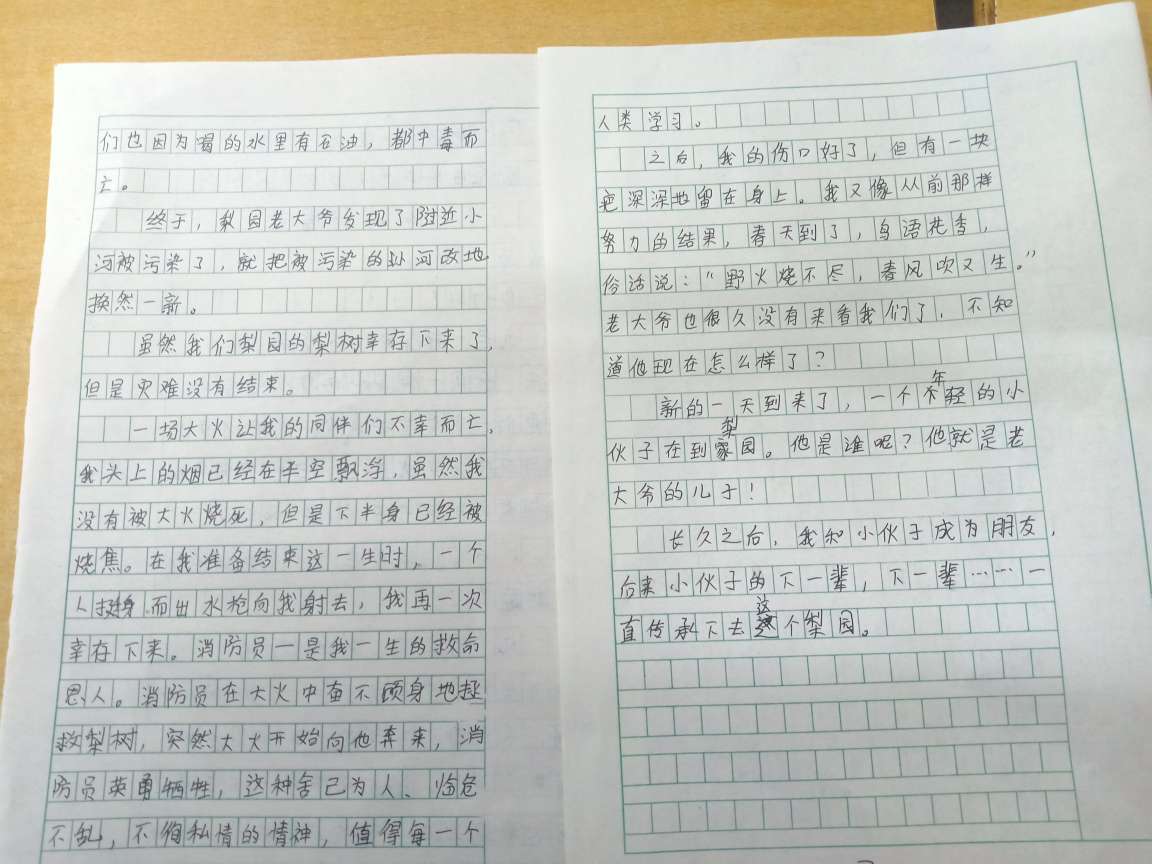 们也因为喝的水里有石油，都中毒而
亡。
终于，梨园老大爷发现了附近小
河被污染了，就把被污染的小河改地
换然一新。
虽然我们梨园的梨树幸存下来了，
但是灾难没有结束。
一场大火让我的同伴们不幸而亡，
我头上的烟已经在半空飘浮，虽然我
没有被大火烧死，但是下半身已经被
烧焦。在我准备结束这一生时，一个
人挺身而出水枪向我射去，我再一次
幸存下来。消防员一是我一生的救命
恩人。消防员在大火中奋不顾身地拯
救梨树，突然大火开始向他奔来，消
防员英勇牺牲，这种舍己为人、临危
不乱，不徇私情的情神，值得每一个
人类学习。
之后，我的伤口好了，但有一块
疤深深地留在身上。我又像从前那样
努力的结果，春天到了，鸟语花香，
俗话说：“野火烧不尽，春风吹又生。”
老大爷也很久没有来看我们了，不知
道他现在怎么样了？
新的一天到来了，一个年轻的小
伙子在到梨园。他是谁呢？他就是老
大爷的儿子！
长久之后，我和小伙子成为朋友，
后来小伙子的下一辈，下一辈……一
直传承下去这个梨园。